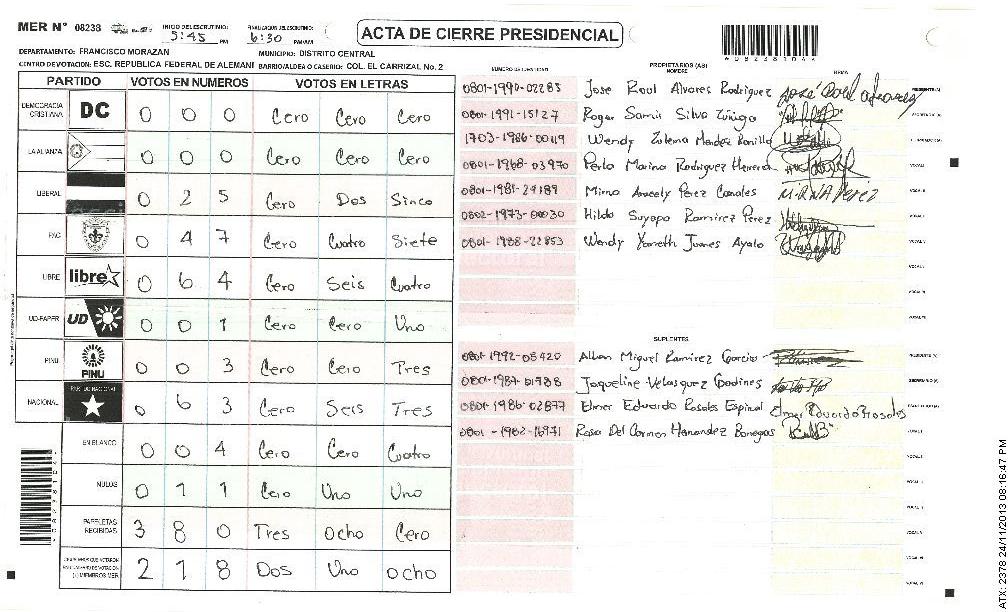 MER N° 08238
INICIO DEL ESCRUTINIO 5:45 PM
FINALIZACION DEL ESCRUTINIO 6:30 PM/AM
ACTA DE CIERRE PRESIDENCIAL
DEPARTAMENTO: FRANCISCO MORAZAN MUNICIPIO: DISTRITO CENTRAL
CENTRO DE VOTACION: ESC. REPUBLICA FEDERAL DE ALEMANI BARRIO/ALDEA O CASERIO: COL. EL CARRIZAL No. 2
PARTIDO VOTOS EN NUMEROS VOTOS EN LETRAS
DEMOCRACIA CRISTIANA DC 0 0 0 Cero Cero Cero
LA ALIANZA 0 0 0 Cero Cero Cero
LIBERAL 0 2 5 Cero Dos Sinco
PAC 0 4 7 Cero Cuatro Siete
LIBRE libre 0 6 4 Cero Seis Cuatro
UD-FAPER UD 0 0 1 Cero Cero Uno
PINU PINU 0 0 3 Cero Cero Tres
NACIONAL PARTIDO NACIONAL 0 6 3 Cero Seis Tres
EN BLANCO 0 0 4 Cero Cero Cuatro
NULOS 0 1 1 Cero Uno Uno
PAPELETAS RECIBIDAS 3 8 0 Tres Ocho Cero
2 1 8 Dos Uno Ocho
NUMERO DE IDENTIDAD PROPIETARIOS (AS) NOMBRE FIRMA
0801-1990-02285 Jose Raul Alvares Rodriguez PRESIDENTE (A)
0801-1991-15127 Roger Samir Silva Zúniga SECRETARIO (A)
1703-1986-00119 Wendy Zulema Mendez Bonilla
0801-1968-03970 Perla Marina Rodriguez Herrera VOCAL I
0801-1981-29189 Mirna Aracely Perez Canales MIRNA Perez VOCAL II
0802-1973-00030 Hilda Suyapa Ramirez Perez
0801-1988-22853 Wendy Yaneth Juanes Ayala
SUPLENTES
0801-1992-05420 Allan Miguel Ramirez Garcia PRESIDENTE (A)
0801-1987-01788 Jaqueline Velasquez Godines SECRETARIO (A)
0801-1986-02877 Elmer Eduardo Rosales Espinal Elmer Eduardo Rosales
0801-1982-16971 Rosa Del Carmen Hernandez Banegas
ATX: 2378 24/11/2013 08:16:47 PM